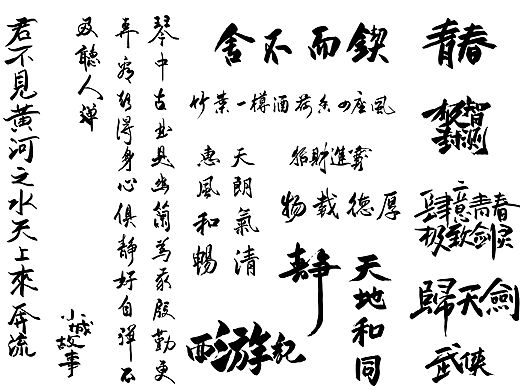 君不見黄河之水天上來奔流
琴中古曲是幽蘭為我殷勤更
弄看欲得身心俱靜好自彈不
及聽人彈
小城故事
鍥而不舍
竹葉一樽酒荷香四座風
天朗氣清
惠風和暢
招財進寶
厚德載物
靜
天地和同
西游記
青春
肆意青春
极致剑灵
歸天劍
武侠